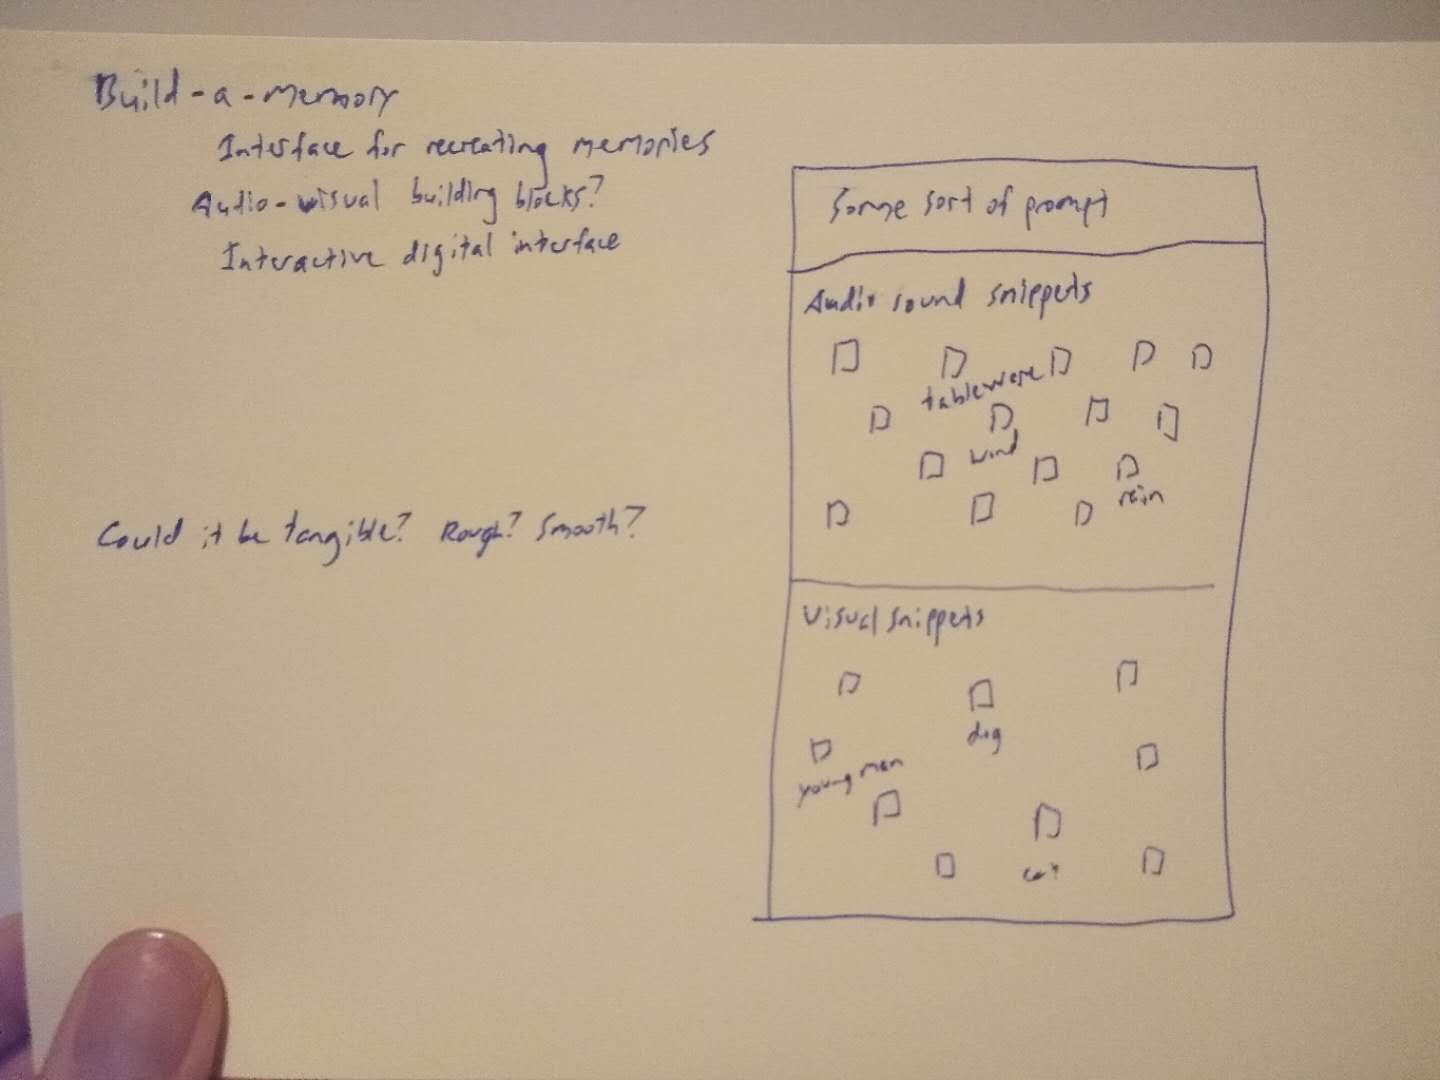 Build-a-memory
Interface for recreating memories
Audio-visual building blocks?
Interactive digital interface
Could it be tangible? Rough? Smooth?
Some sort of prompt
Audio sound snippets
tableware
wind
rain
Visual snippets
dog
young man
cat